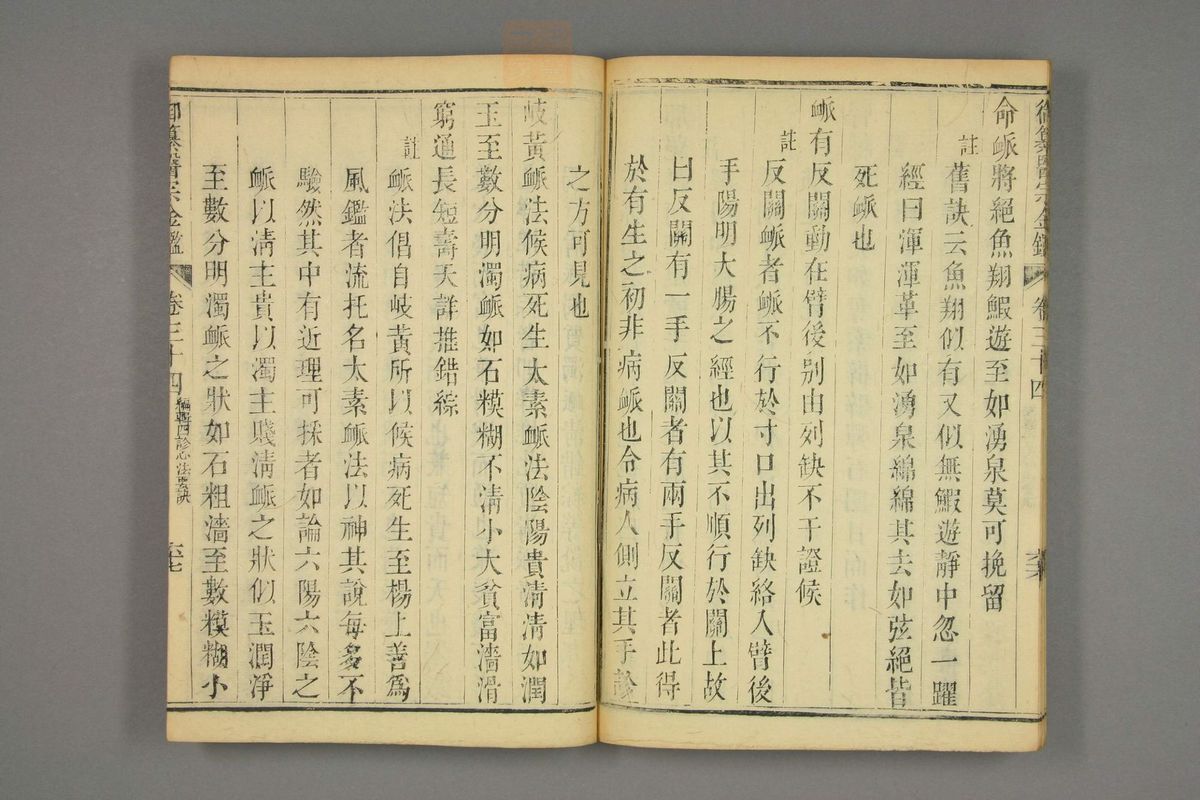 御纂醫宗金鑑 卷三十四
命脈將絕魚翔鰕遊至如湧泉莫可挽留
註
舊訣云魚翔似有又似無鰕遊靜中忽一躍
經曰渾渾革至如湧泉綿綿其去如弦絕皆
死脈也
脈有反關動在臂後別由列缺不干證候
註
反關脈者脈不行於寸口出列缺絡入臂後
手陽明大腸之經也以其不順行於關上故
曰反關有一手反關者有兩手反關者此得
於有生之初非病脈也令病人側立其手診
之方可見也
岐黃脈法候病死生太素脈法陰陽貴淸淸如潤
玉至數分明濁脈如石糢糊不淸小大貧富濇滑
窮通長短壽夭詳推錯綜
註
脈法倡自岐黃所以候病死生至楊上善爲
風鑑者流托名太素脈法以神其說每多不
驗然其中有近理可採者如論六陽六陰之
脈以淸主貴以濁主賤淸脈之狀似玉潤淨
至數分明濁脈之狀如石粗濇至數糢糊小
御纂醫宗金鑑 卷三十四 編輯四診心法要訣 六七